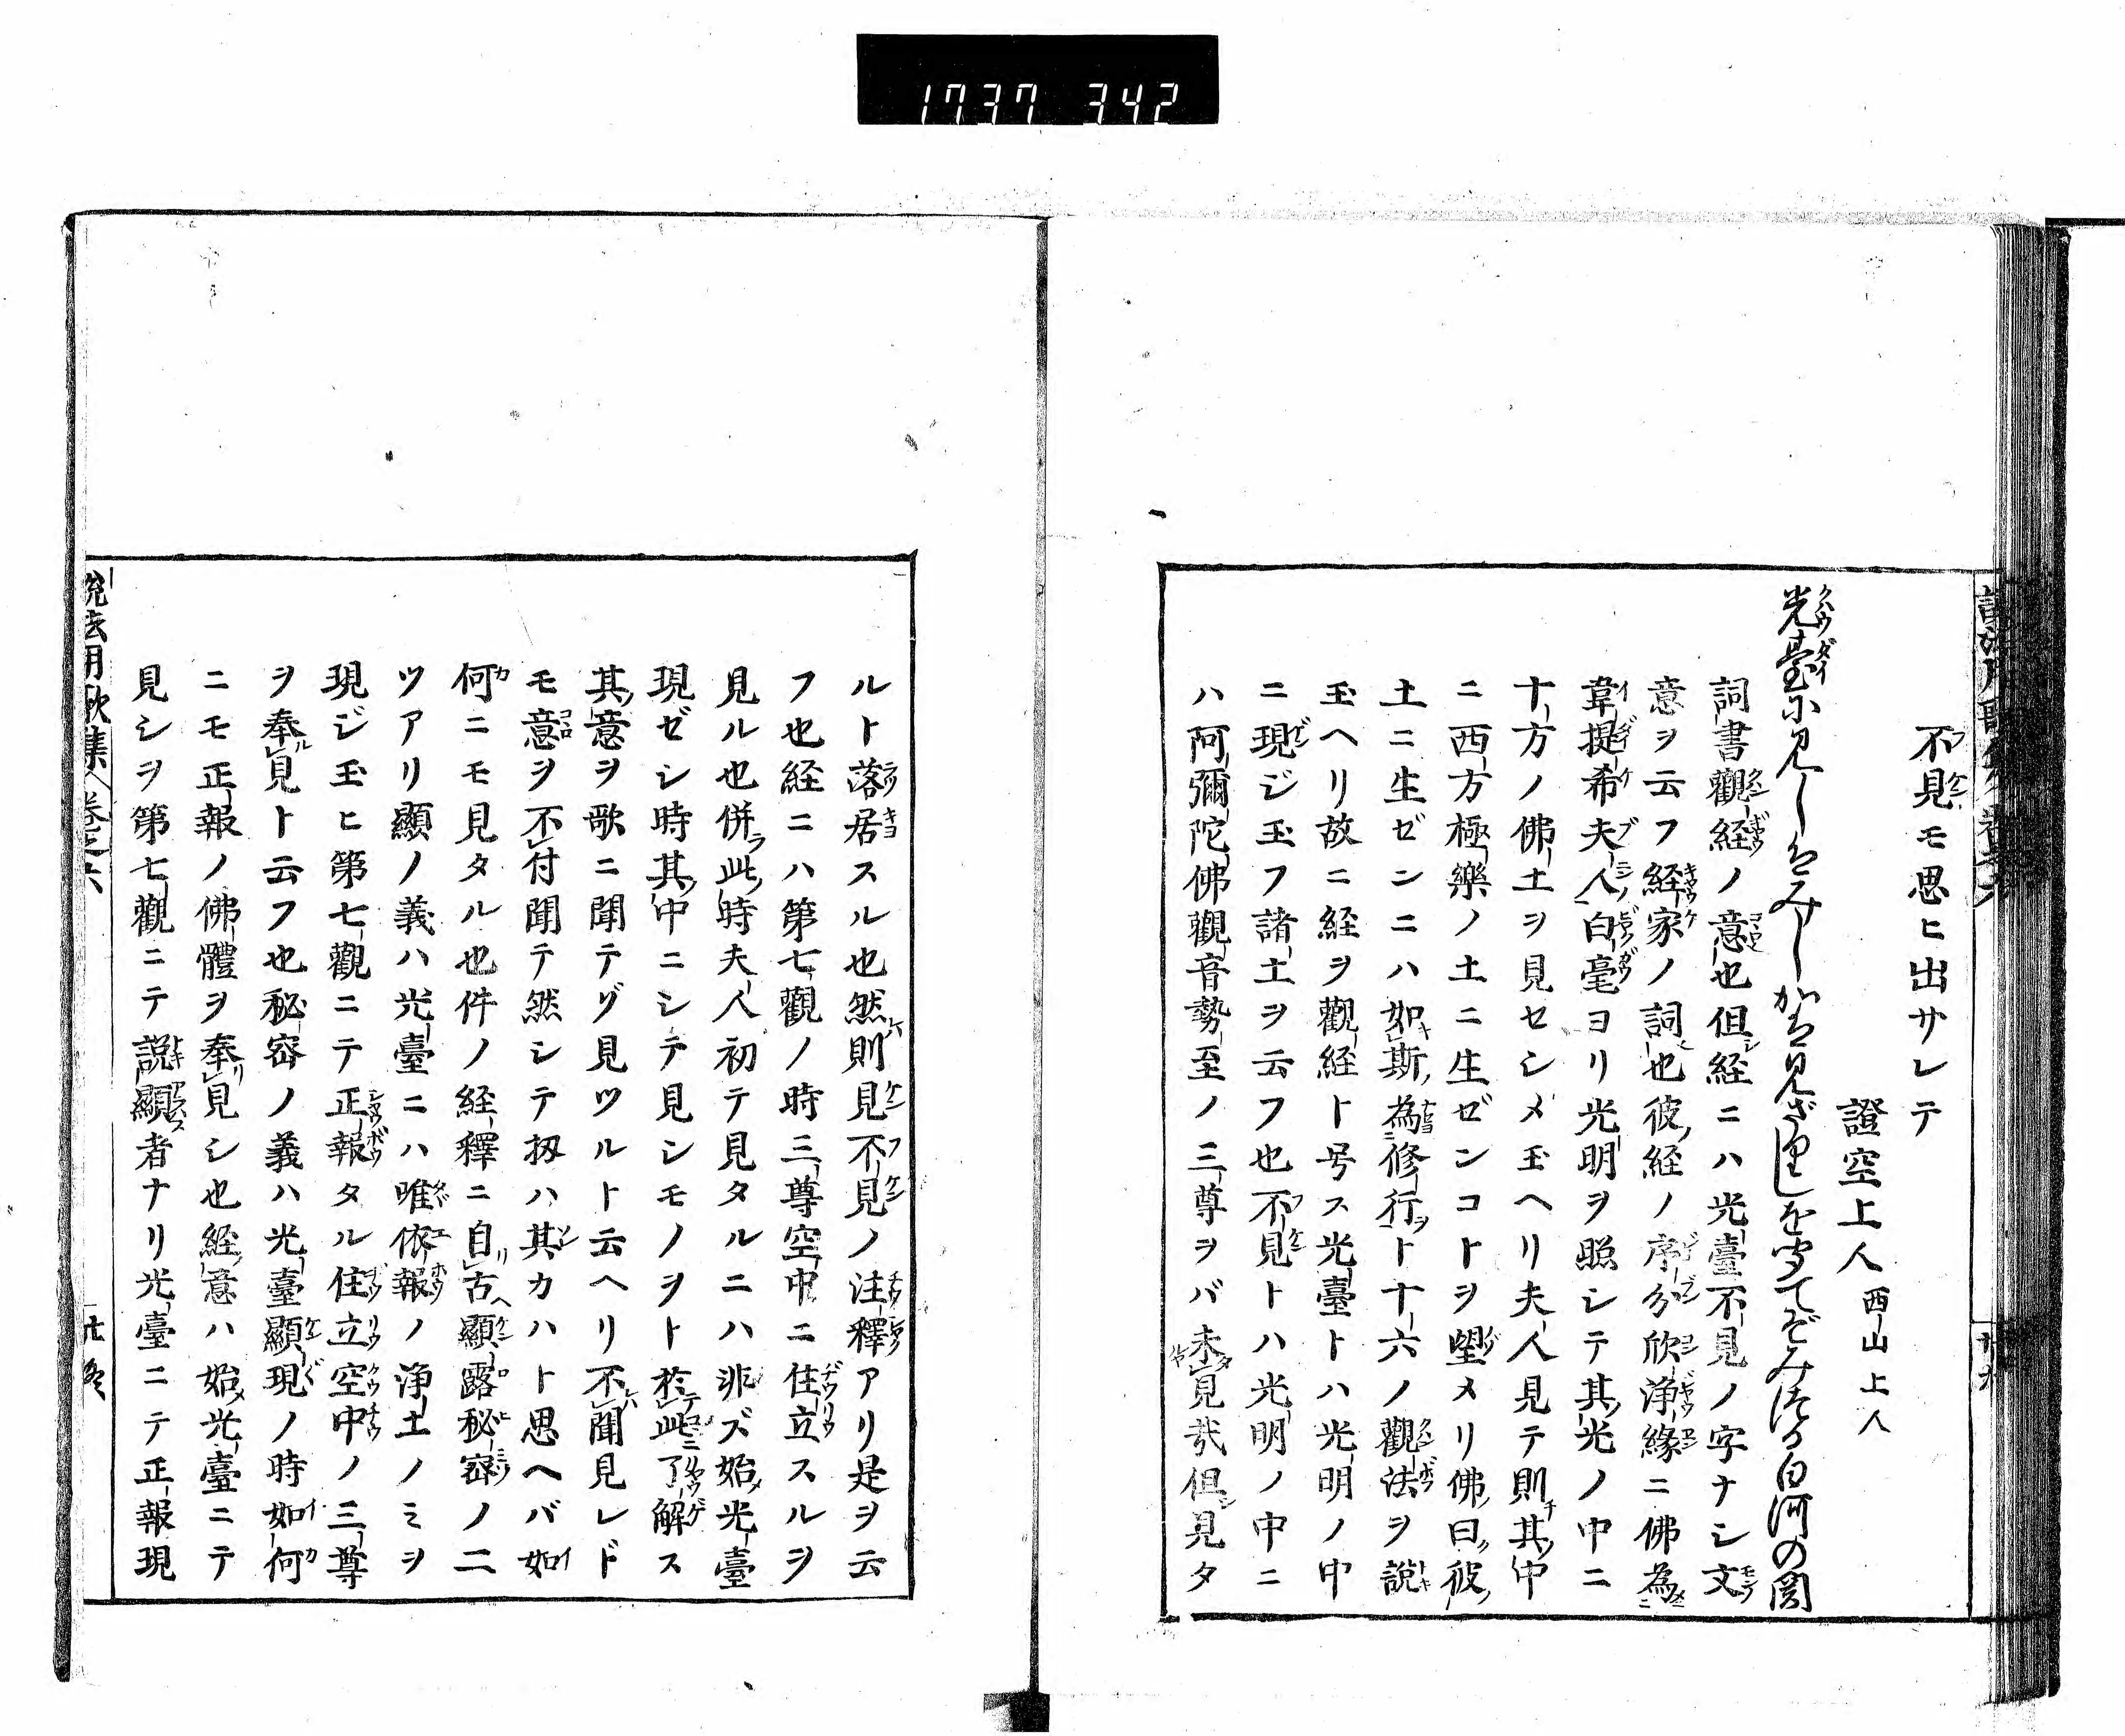 1737 342
不見モ思ヒ出サレテ
證空上人 西山上人
光臺に見しはみしかは見ざりしを聞てぞみつる白河の関
詞書觀経ノ意也但経ニハ光臺不見ノ字ナシ文
意ヲ云フ経家ノ詞也彼経ノ序分欣浄縁ニ佛為
韋提希夫人白毫ヨリ光明ヲ照シテ其光ノ中ニ
十方ノ佛土ヲ見セシメ玉ヘリ夫人見テ則其中
ニ西方極樂ノ土ニ生ゼンコトヲ望メリ佛曰彼
土ニ生ゼンニハ如斯為修行ヲト十六ノ觀法ヲ説
玉ヘリ故ニ経ヲ觀経ト号ス光臺トハ光明ノ中
ニ現ジ玉フ諸土ヲ云フ也不見トハ光明ノ中ニ
ハ阿彌陀佛觀音勢至ノ三尊ヲバ未見哉但見タ
ルト落居スル也然則見不見ノ注釋アリ是ヲ云
フ也経ニハ第七觀ノ時三尊空中ニ住立スルヲ
見ル也併此時夫人初テ見タルニハ非ズ始光臺
現ゼシ時其中ニシテ見シモノヲト於此了解ス
其意ヲ歌ニ聞テゾ見ツルト云ヘリ不聞見レド
モ意ヲ不付聞テ然シテ扨ハ其カハト思ヘバ如
何ニモ見タル也件ノ経釋ニ自古顯露秘密ノ二
ツアリ顯ノ義ハ光臺ニハ唯依報ノ浄土ノミヲ
現ジ玉ヒ第七觀ニテ正報タル住立空中ノ三尊
ヲ奉見ト云フ也秘密ノ義ハ光臺顯現ノ時如何
ニモ正報ノ佛體ヲ奉見シ也経意ハ始光臺ニテ
見シヲ第七觀ニテ説顯者ナリ光臺ニテ正報現
説法用歌集 巻之六